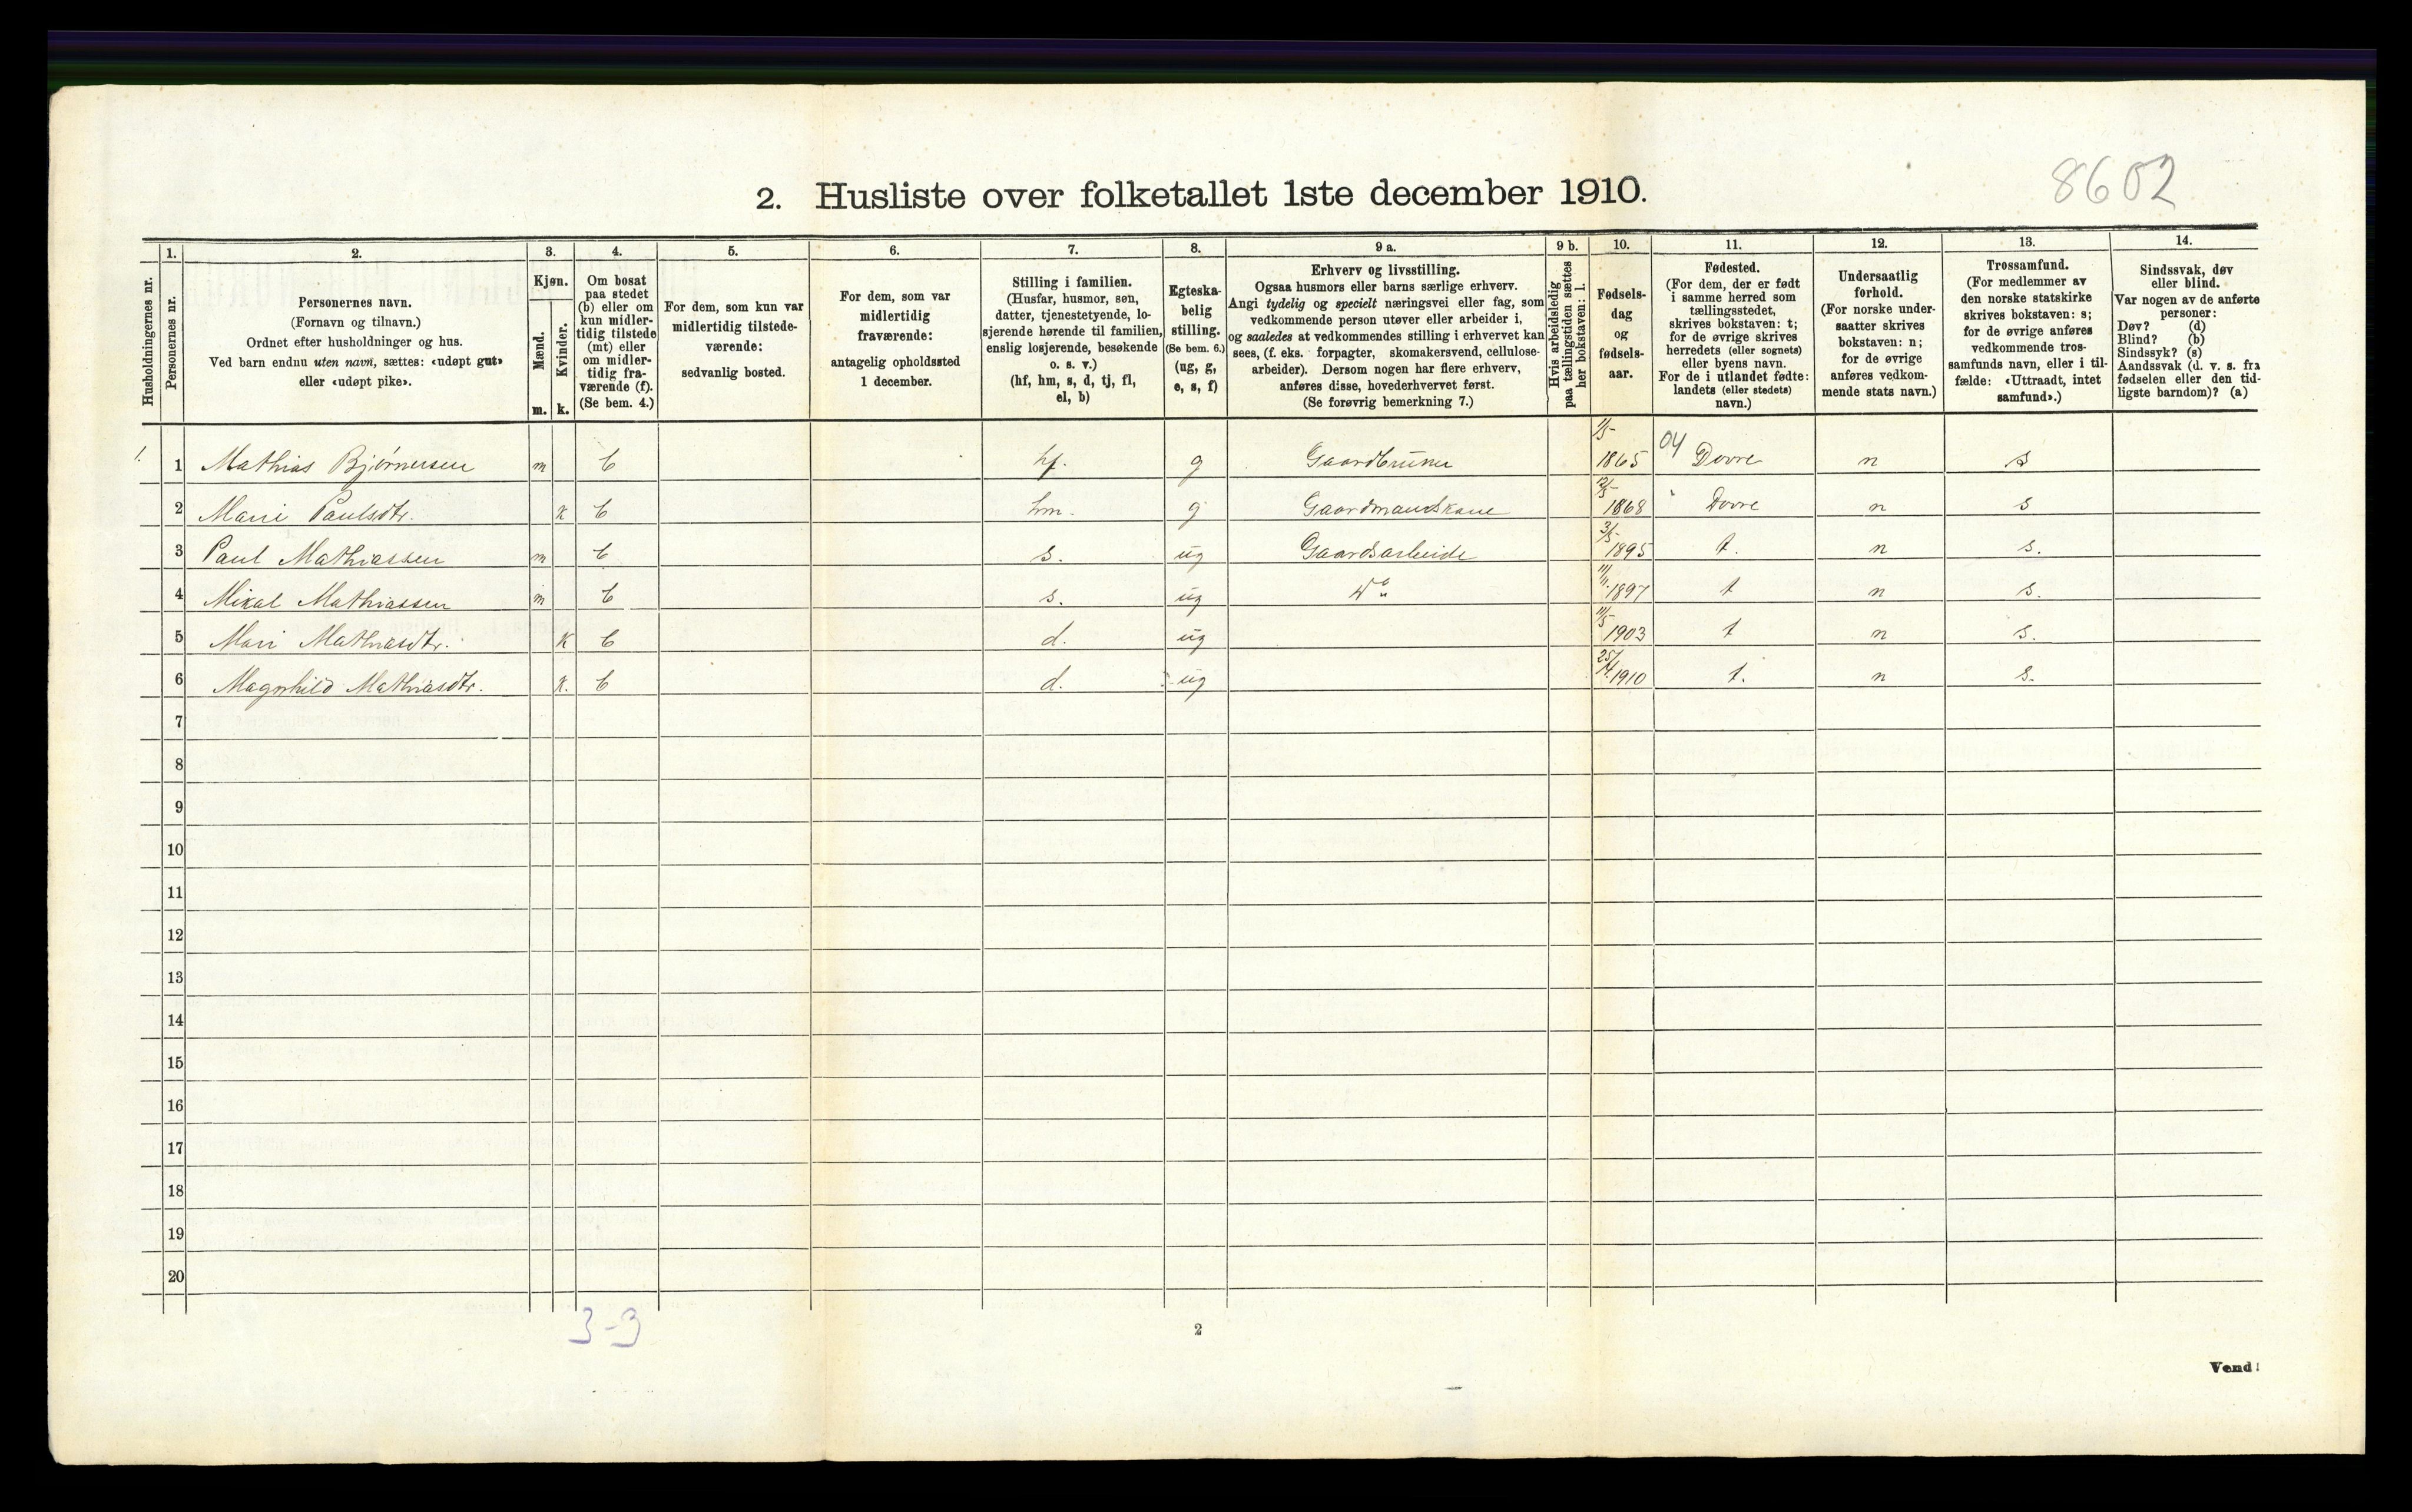 8602
2. Husliste over folketallet 1ste december 1910.
1. 2. 3. 4. 5. 6. 7. 8. 9 a. 9 b. 10. 11. 12. 13. 14.
Husholdningernes nr.
Personernes nr.
Personernes navn.
(Fornavn og tilnavn.)
Ordnet efter husholdninger og hus.
Ved barn endnu uten navn, sættes: «udøpt gut»
eller «udøpt pike».
Kjøn.
Mænd.
Kvinder.
m. k.
Om bosat
paa stedet
(b) eller om
kun midler-
tidig tilstede
(mt) eller
om midler-
tidig fra-
værende (f).
(Se bem. 4.)
For dem, som kun var
midlertidig tilstede-
værende:
sedvanlig bosted.
For dem, som var
midlertidig
fraværende:
antagelig opholdssted
1 december.
Stilling i familien.
(Husfar, husmor, søn,
datter, tjenestetyende, lo-
sjerende hørende til familien,
enslig losjerende, besøkende
o. s. v.)
(hf, hm, s, d, tj, fl,
el, b)
Egteska-
belig
stilling.
(Se bem. 6.)
(ug, g,
e, s, f)
Erhverv og livsstilling.
Ogsaa husmors eller barns særlige erhverv.
Angi tydelig og specielt næringsvei eller fag, som
vedkommende person utøver eller arbeider i,
og saaledes at vedkommendes stilling i erhvervet kan
sees, (f. eks. forpagter, skomakersvend, cellulose-
arbeider). Dersom nogen har flere erhverv,
anføres disse, hovederhvervet først.
(Se forøvrig bemerkning 7.)
Hvis arbeidsledig
paa tællingstiden sættes
her bokstaven: l.
Fødsels-
dag
og
fødsels-
aar.
Fødested.
(For dem, der er født
i samme herred som
tællingsstedet,
skrives bokstaven: t;
for de øvrige skrives
herredets (eller sognets)
eller byens navn.
For de i utlandet fødte:
landets (eller stedets)
navn.)
Undersaatlig
forhold.
(For norske under-
saatter skrives
bokstaven: n;
for de øvrige
anføres vedkom-
mende stats navn.)
Trossamfund.
(For medlemmer av
den norske statskirke
skrives bokstaven: s;
for de øvrige anføres
vedkommende tros-
samfunds navn, eller i til-
fælde: «Uttraadt, intet
samfund».)
Sindssvak, døv
eller blind.
Var nogen av de anførte
personer:
Døv? (d)
Blind? (b)
Sindssyk? (s)
Aandssvak (d. v. s. fra
fødselen eller den tid-
ligste barndom)? (a)
1. 1 Mathias Bjørnersen m b hf. g Gaardbruker 1/5- 1865 04 Dovre n s
2 Marie Paulsdtr. k b hm. g Gaardmandskone 12/5- 1868 " Dovre n s
3 Paul Mathiassen m b s. ug Gaardsarbeide 3/5- 1895 t. n s.
4 Mikal Mathiassen m b s. ug Do 11/11. 1897 t n s.
5 Mari Mathiasdtr. K b d. ug 11/5 1903 t n s.
6 Magnhild Mathiasdtr. k. b d. ug 25/4. 1910 t. n s.
7
8
9
10
11
12
13
14
15
16
17
18
19
20
3-3
2
Vend!